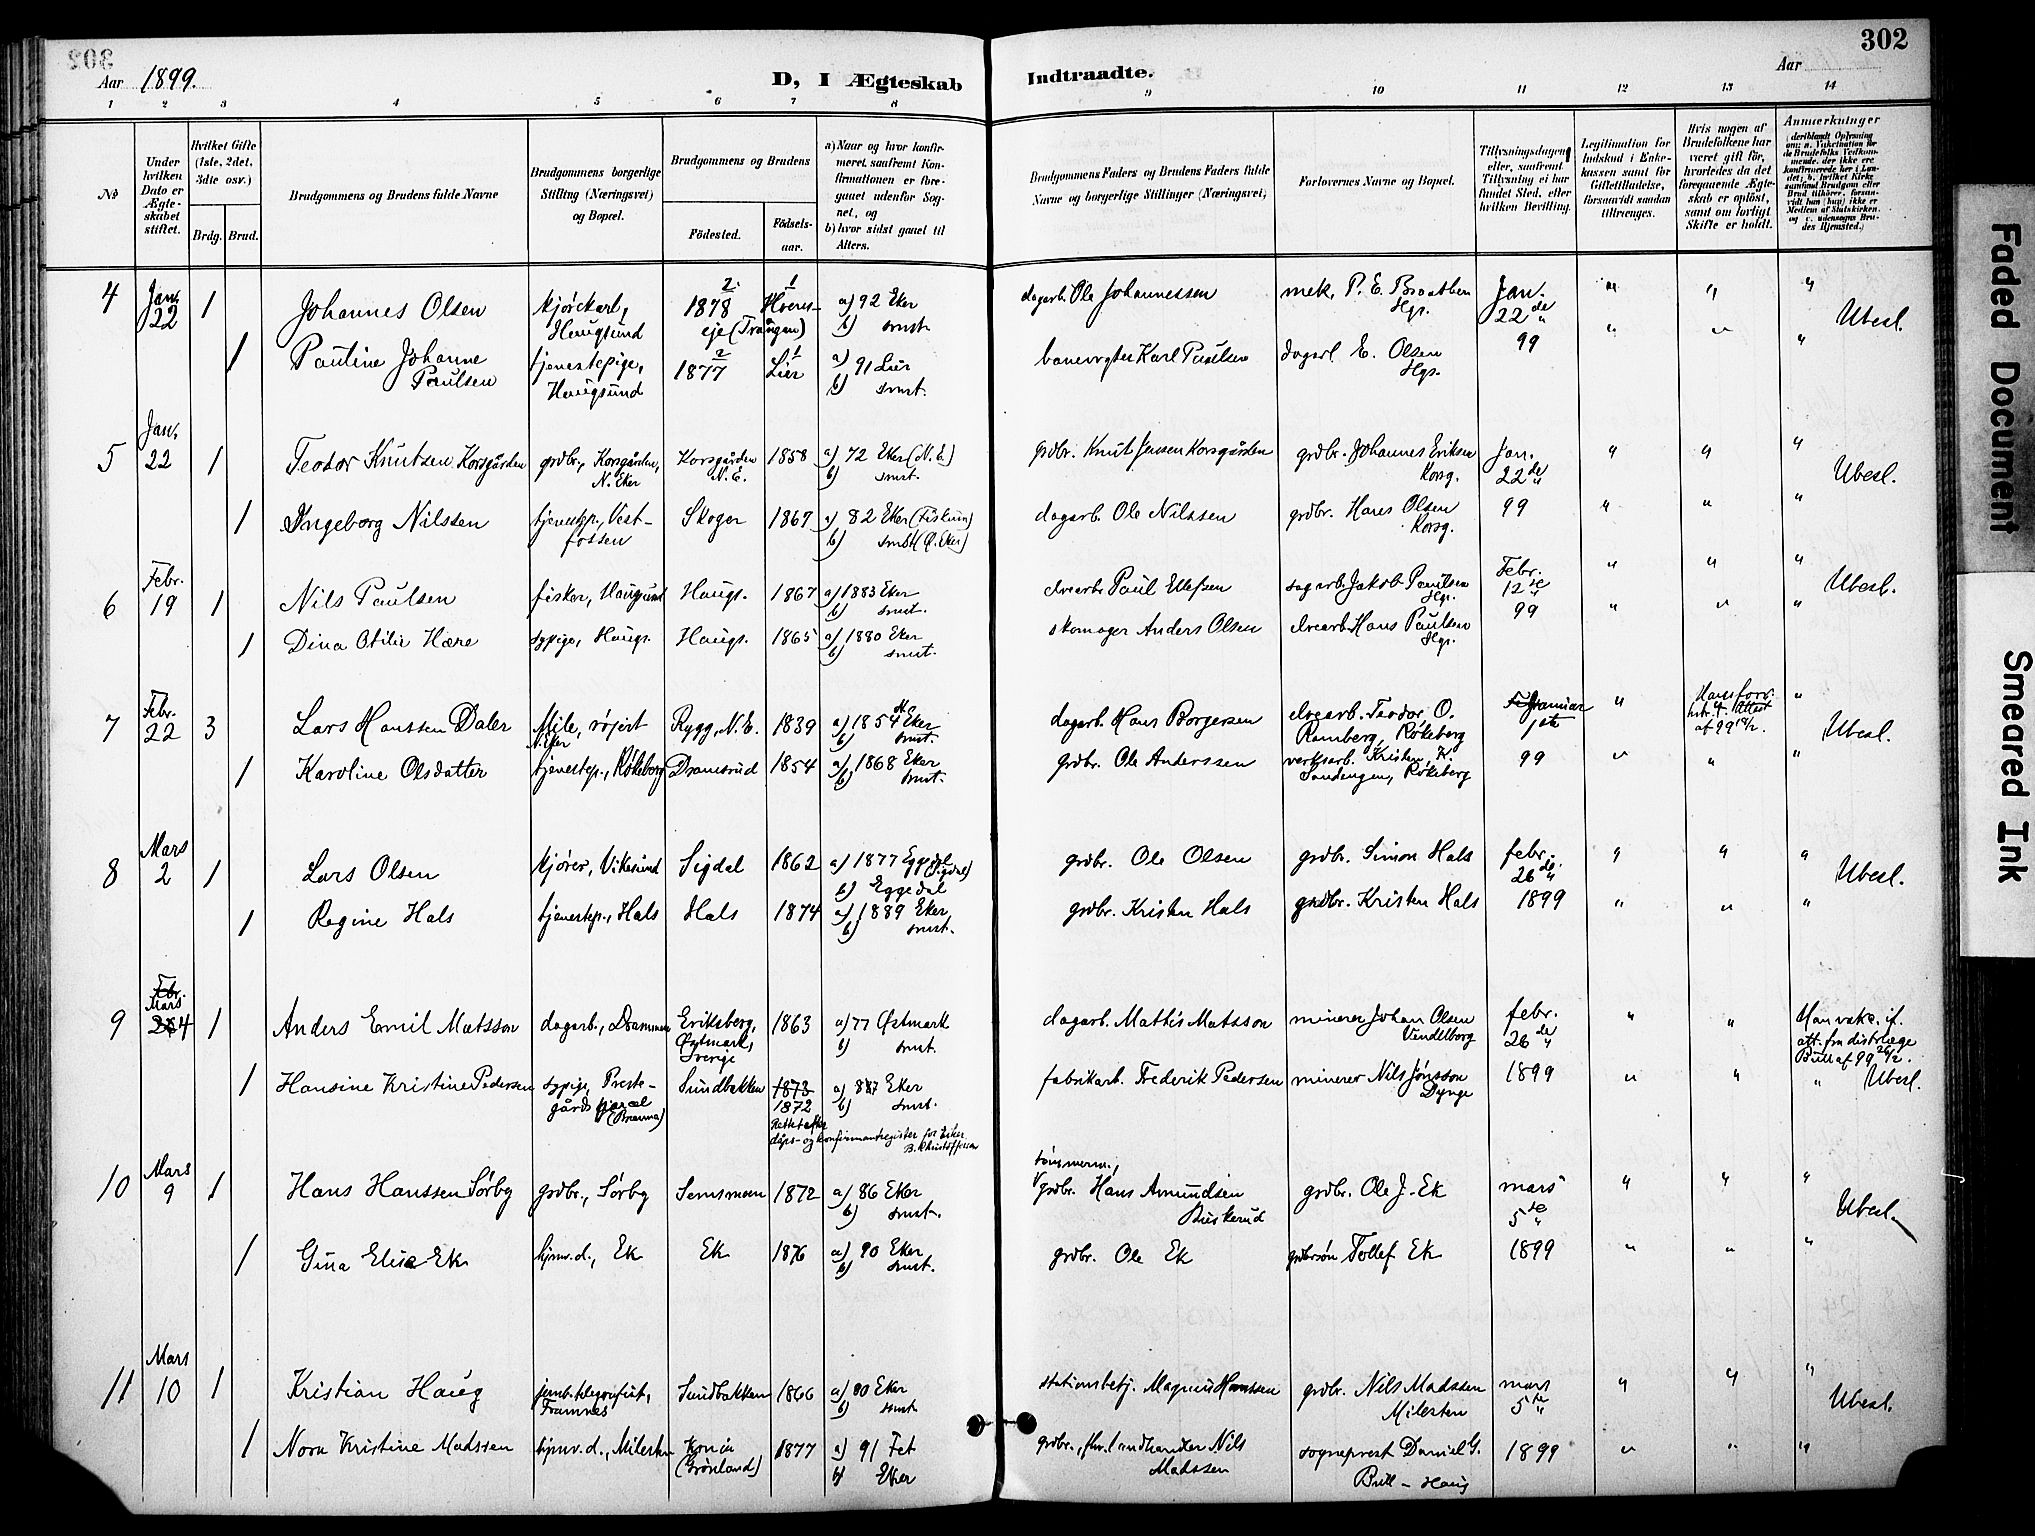 302
Aar 1899.
D, I Ægteskab Indtraadte.
Aar
1 2 3 4 5 6 7 8 9 10 11 12 13 14
No
Under hvilken Dato er Ægteskabet stiftet.
Hvilket Gifte (1ste, 2det, 3die osv.)
Brdg. Brud.
Brudgommens og Brudens fulde Navne
Brudgommens borgerlige Stilling (Næringsvei) og Bopæl.
Brudgommens og Brudens
Fødested. Fødselsaar.
a) Naar og hvor konfirmeret, saafremt Konfirmationen er foregaaet udenfor Sognet, og
b) hvor sidst gaaet til Alters.
Brudgommens Faders og Brudens Faders fulde Navne og borgerlige Stillinger (Næringsvei)
Forlovernes Navne og Bopæl.
Tillysningsdagene eller, saafremt Tillysning ei har fundet Sted, efter hvilken Bevilling.
Legitimation for Indskud i Enkekassen samt for Giftetilladelse, forsaavidt saadan tiltrenges.
Hvis nogen af Brudefolkene har været gift før, hvorledes da det foregaaende Ægteskab er opløst, samt om lovligt Skifte er holdt.
Anmærkninger
4 Jan. 22 1 Johannes Olsen kjørekarl, Haugsund 1878 Hoenseje (Trangen) a) 92 Eker b) smst. dagarb. Ole Johannessen mek. P. E. Braathen Hgs. Jan. 22de " " " " Ubesl.
1 Pauline Johanne Paulsen tjenestepige, Haugsund 1877 Lier a) 91 Lier b) smst. banevogter Karl Paulsen dagarb. E. Olsen Hgs. 99 " " "
5 Jan. 22 1 Teodor Knutsen Korsgården grdbr., Korsgården, N. Eker Korsgården N. E. 1858 a) 72 Eker (N. E.) b) smst. grdbr. Knut Jensen Korsgården grdbr. Johannes Eriksen Korsg. Jan. 22de " " " " Ubesl.
1 Ingeborg Nilssen tjenestep., Vestfossen Skoger 1867 a) 82 Eker (Fiskum) b) smst (Ø. Eker) dagarb. Ole Nilssen grdbr. Hans Olsen Korsg. 99 " " "
6 Febr. 19 1 Nils Paulsen fisker, Haugsund Haugs. 1867 a) 1883 Eker b) smst. elvearb. Paul Ellefsen dagarb. Jakob Paulsen Hgs. Febr. 12te " " " " Ubesl.
1 Dina Otilie Hære sypige, Haugs. Haugs. 1865 a) 1880 Eker b) smst. skomager Anders Olsen elvearb. Hans Paulsen Hgs. 99 " " "
7 Febr. 22 3 Lars Hanssen Daler Mile, N. Eker Rygg, N. E. 1839 a) 1854 Eker b) smst. dagarb. Hans Borgersen elvearb. Teodor O. Ramberg, Røkeberg Januar 1ste " Hans forr. af 99 18/2. " Ubesl.
1 Karoline Olsdatter tjenestep., Røkeberg Dramsrud 1854 a) 1868 Eker b) smst. grdbr. Ole Anderssen verksarb. Kristen K. Sandengen, Røkeberg 99 " " "
8 Mars 2 1 Lars Olsen kjører, Vikesund Sigdal 1862 a) 1877 Eggedal (Sigdal) b) Eggedal grdbr. Ole Olsen grdbr. Simon Hals febr. 26de " " " " Ubesl.
1 Regine Hals tjenestep., Hals Hals 1874 a) 1889 Eker, b) smst. grdbr. Kristen Hals grdbr. Kristen Hals 1899 " " "
9 Febr. Mars 4 1 Anders Emil Matsson dagarb., Drammen Eriksberg, Østmark, Sverige 1863 a) 77 Østmark b) smst. dagarb. Mattis Matsson minerer Johan Olsen Vendelborg febr. 26de " " " Han vakc. if. att. fra distrlæge Bull af 99 26/2.
1 Hansine Kristine Pedersen sypige, Prestegårds (Brænna) Sundbakken 1873 1872 a) 87 Eker b) smst. fabrikarb. Frederik Pedersen minerer Nils Jönsson Dynge 1899 " " " Ubesl.
Rettet efter dåps- og konfirmantregister for Eiker B. Christoffersen
10 Mars 9 1 Hans Hanssen Sørby grdbr., Sørby Semsmoen 1872 a) 86 Eker b) smst. grdbr. Hans Amundsen Buskerud grdbr. Ole J. Ek mars 5te " " " " Ubesl.
1 Gina Elise Ek hjmv. d., Ek Ek 1876 a) 90 Eker b) smst. grdbr. Ole Ek grdbrsøn Tollef Ek 1899 " " "
11 Mars 10 1 Kristian Haug jernb.telegrafist, Framnes Sundbakken 1866 a) 80 Eker b) smst. stationsbetj. Magnus Hanssen grdbr. Nils Madssen Milesten mars 5te " " " " Ubesl.
1 Nora Kristine Madssen hjmv. d., Milesten (Grønland) 1877 a) 91 Fet b) Eker grdbr., fhv. landhandler Nils Madssen sogneprest Daniel G. Bull - Haug 1899 " " "
Faded Document
Smeared Ink